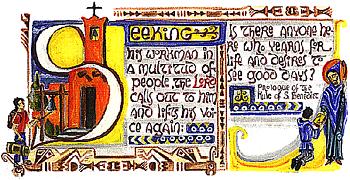 SEEKING
his workman in
a multitud of
people, the Lord
calls out to him
and lifts his voi
ce again:
Is there anyone he
re who yearns for
life and desires to
see good days?
Prologue of the
Rule of S. Benedict